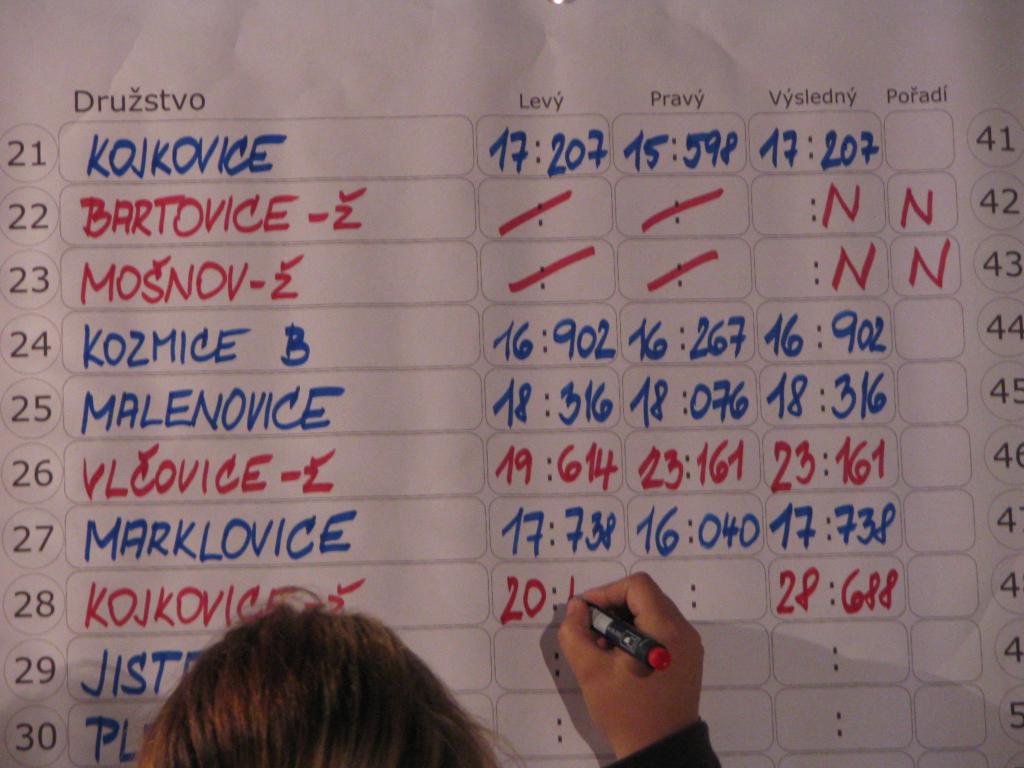 Družstvo Levý Pravý Výsledný Pořadí
21 KOJKOVICE 17:207 15:598 17:207 41
22 BARTOVICE-Ž : : :N N 42
23 MOŠNOV-Ž : : :N N 43
24 KOZMICE B 16:902 16:267 16:902 44
25 MALENOVICE 18:316 18:076 18:316 45
26 VLČOVICE-Ž 19:614 23:161 23:161 46
27 MARKLOVICE 17:738 16:040 17:738
28 KOJKOVICE-Ž 20: : 28:688
29 : :
30 : :